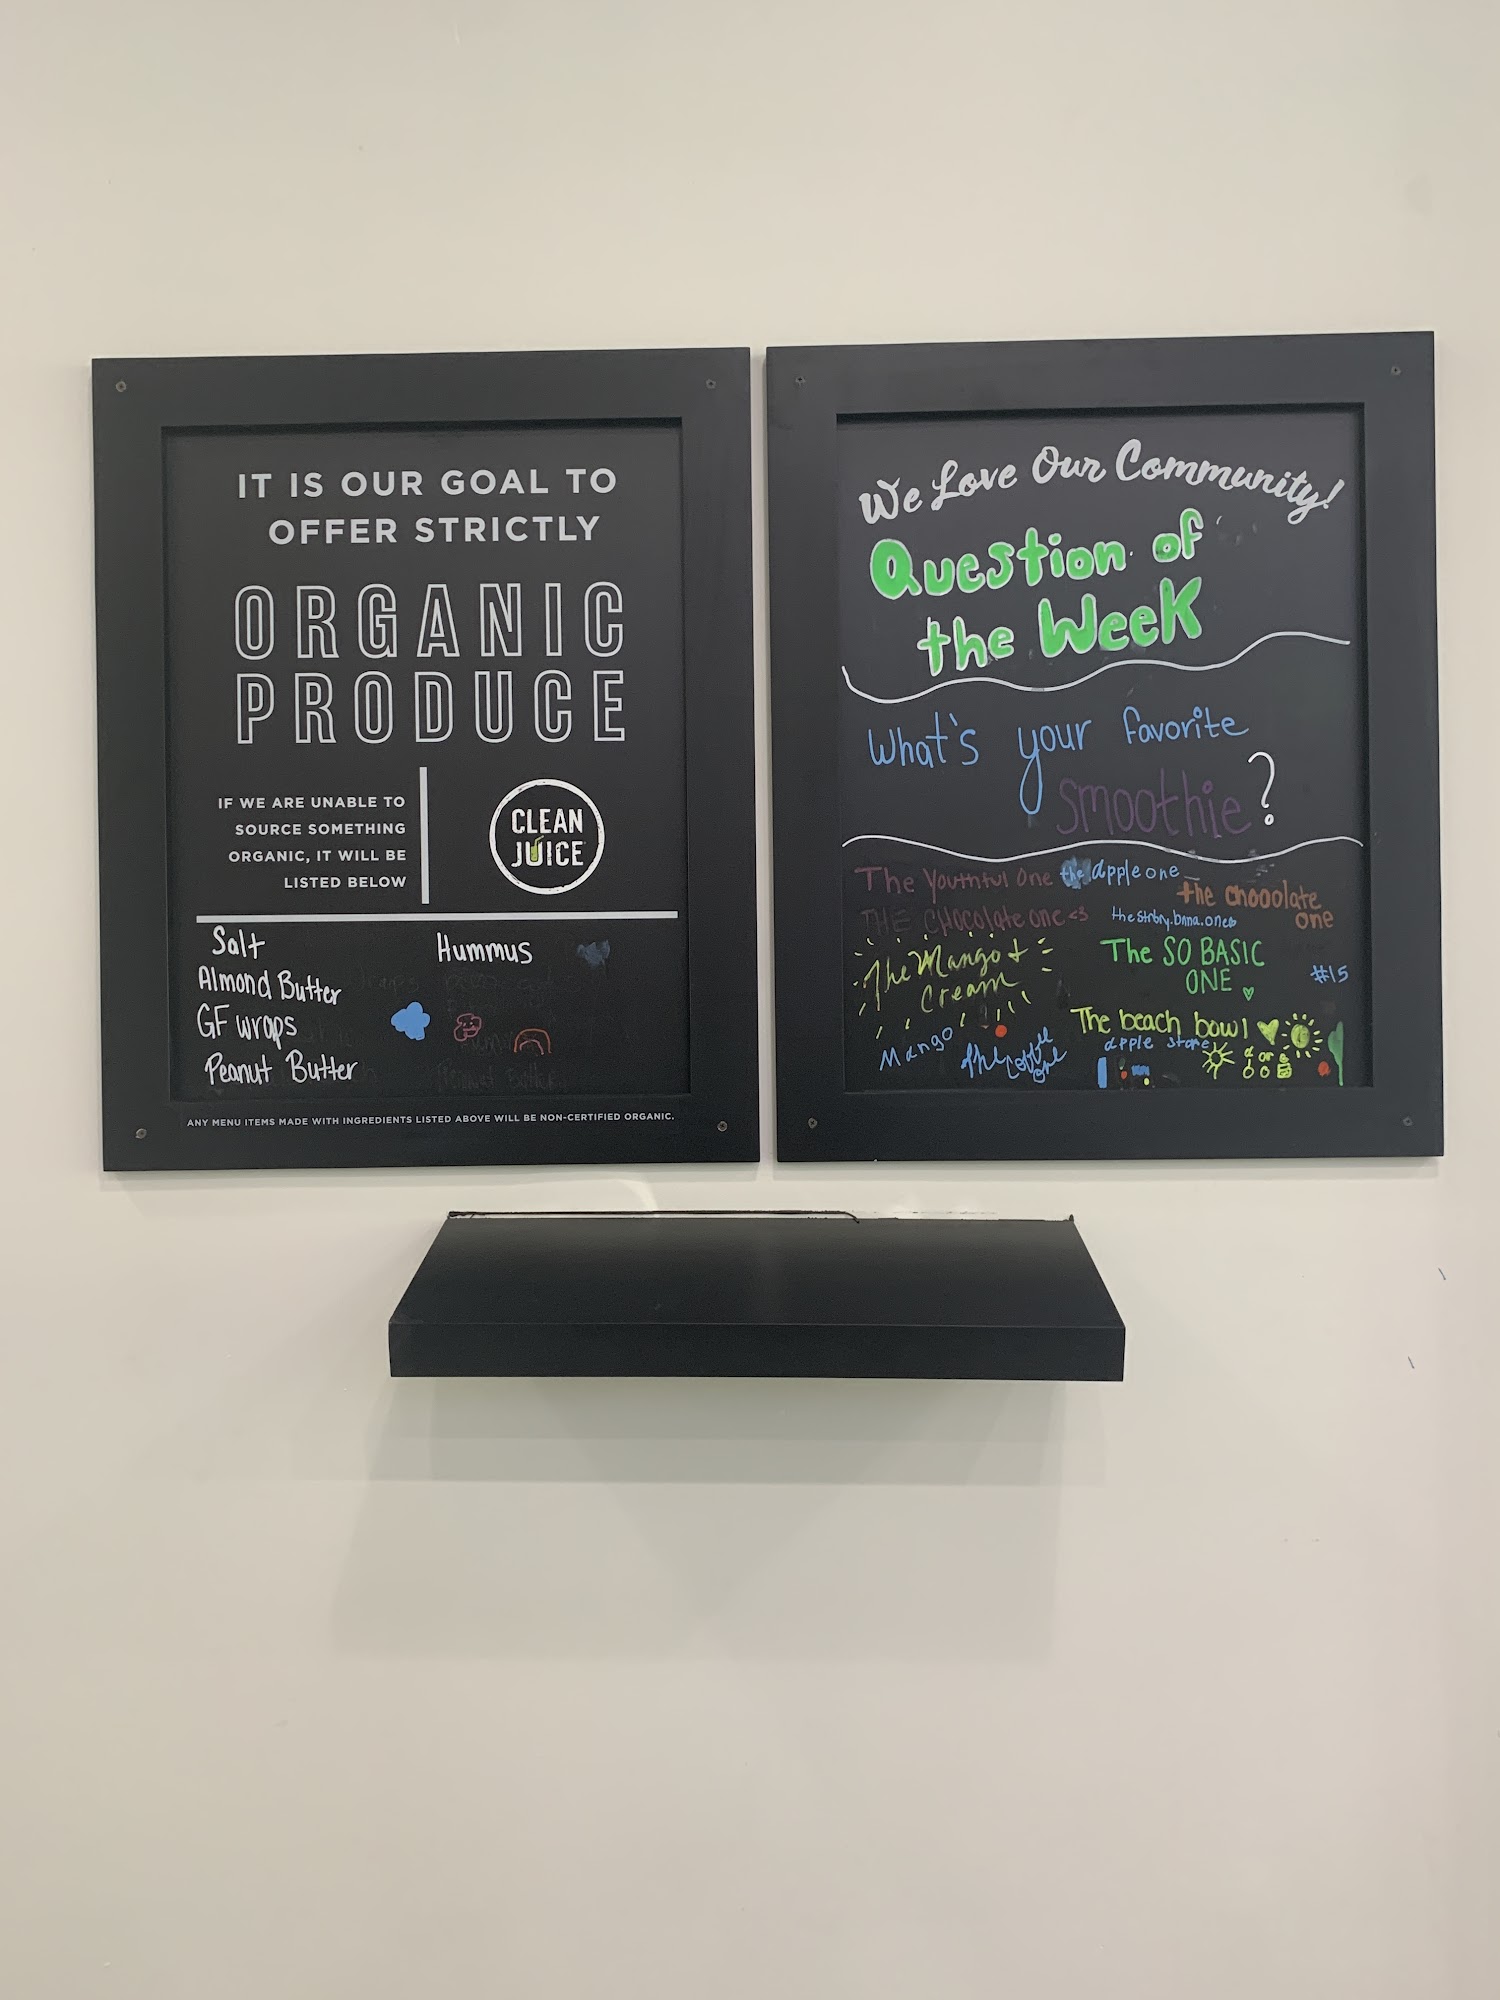 IT IS OUR GOAL TO
OFFER STRICTLY
ORGANIC
PRODUCE
IF WE ARE UNABLE TO
SOURCE SOMETHING
ORGANIC, IT WILL BE
LISTED BELOW
CLEAN
JUICE
Salt
Almond Butter
GF wraps
Peanut Butter
Hummus
ANY MENU ITEMS MADE WITH INGREDIENTS LISTED ABOVE WILL BE NON-CERTIFIED ORGANIC.
We Love Our Community!
Question of
the Week
What's your favorite
smoothie?
The Youthful One
the apple one
the chooolate
one
THE CHocolate one <3
the strbry.bnna.one
The Mango +
Cream
The SO BASIC
ONE
#15
Mango
The beach bowl
apple store